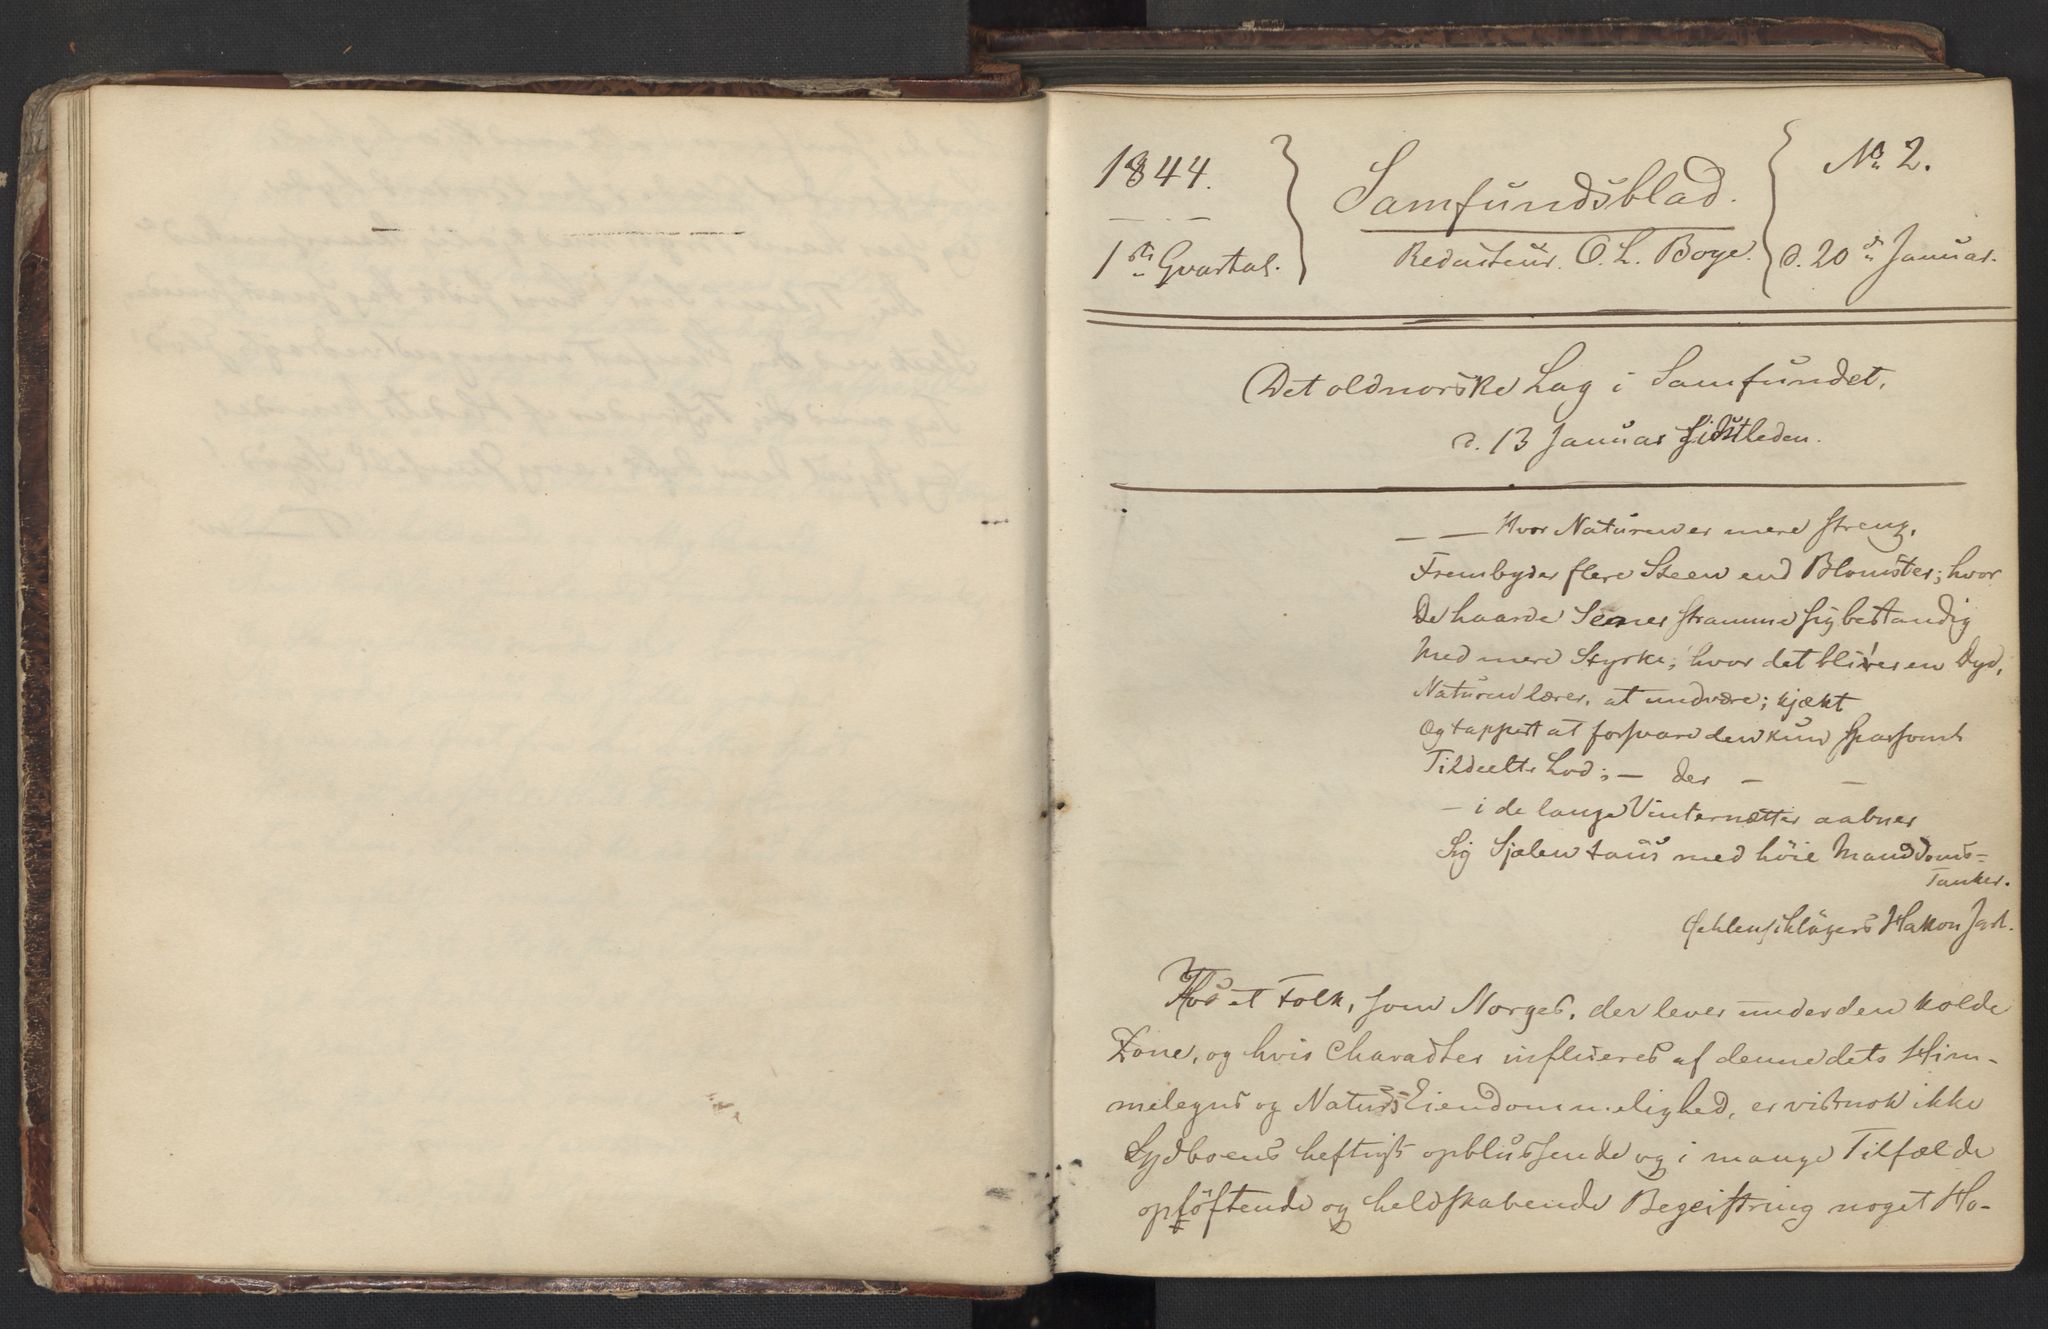 1844.
1ste Qvartal.
Samfundsblad.
Redacteur. O. L. Boye.
No 2.
d. 20de Januar.
Det oldnorske Lag i Samfundet,
d. 13 Januar sidstleden.
— — Hvor Naturen er mere streng,
Frembyder flere Steen end Blomster; hvor
De haarde Sener stramme sig bestandig
Med mere Styrke; hvor det bliver en Dyd,
Naturen lærer, at undvære; kjækt
Og tappert at forsvare den kun sparsomt
Tildeelte Lod; — der — —
— i de lange Vinternætter aabner
Sig Sjælen taus med höie Manddoms-
Tanker.
Oehlenschlägers Hakon Jarl.
Hos et Folk, som Norges, der lever under den kolde
Zone, og hvis Charackter influeres af denne dets Him-
melegns og Naturs Eiendommelighed, er vistnok ikke
Sydboens heftigt opblussende og i mange Tilfælde
oplöftende og heldskabende Begeistring noget Ho-